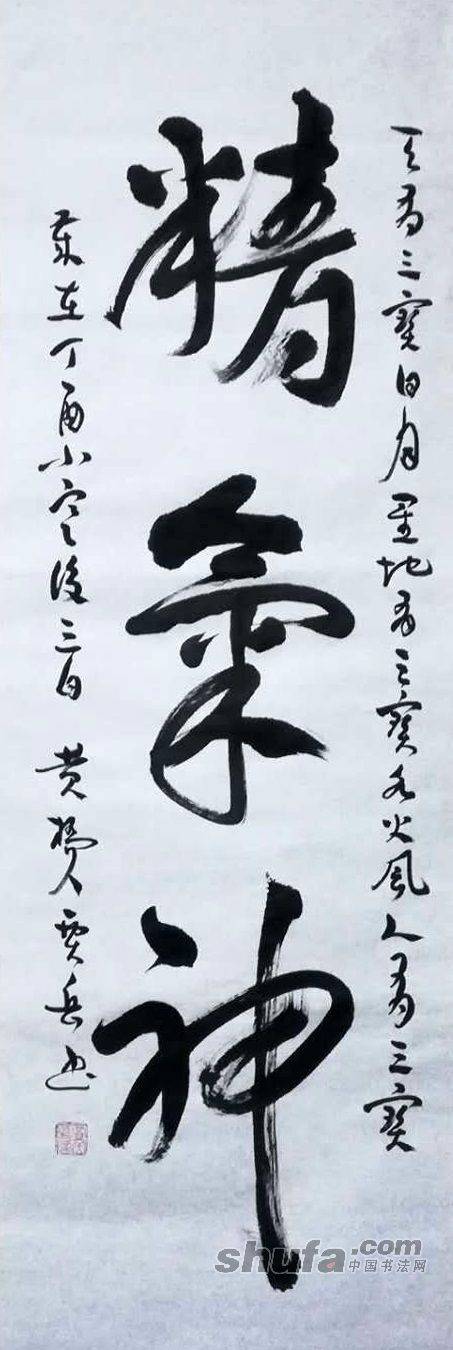 天有三寶日月星地有三寶水火風人有三寶
精氣神
歲在丁酉小寒後三日 黃楊人賈岳書
shufa.com
中国书法网